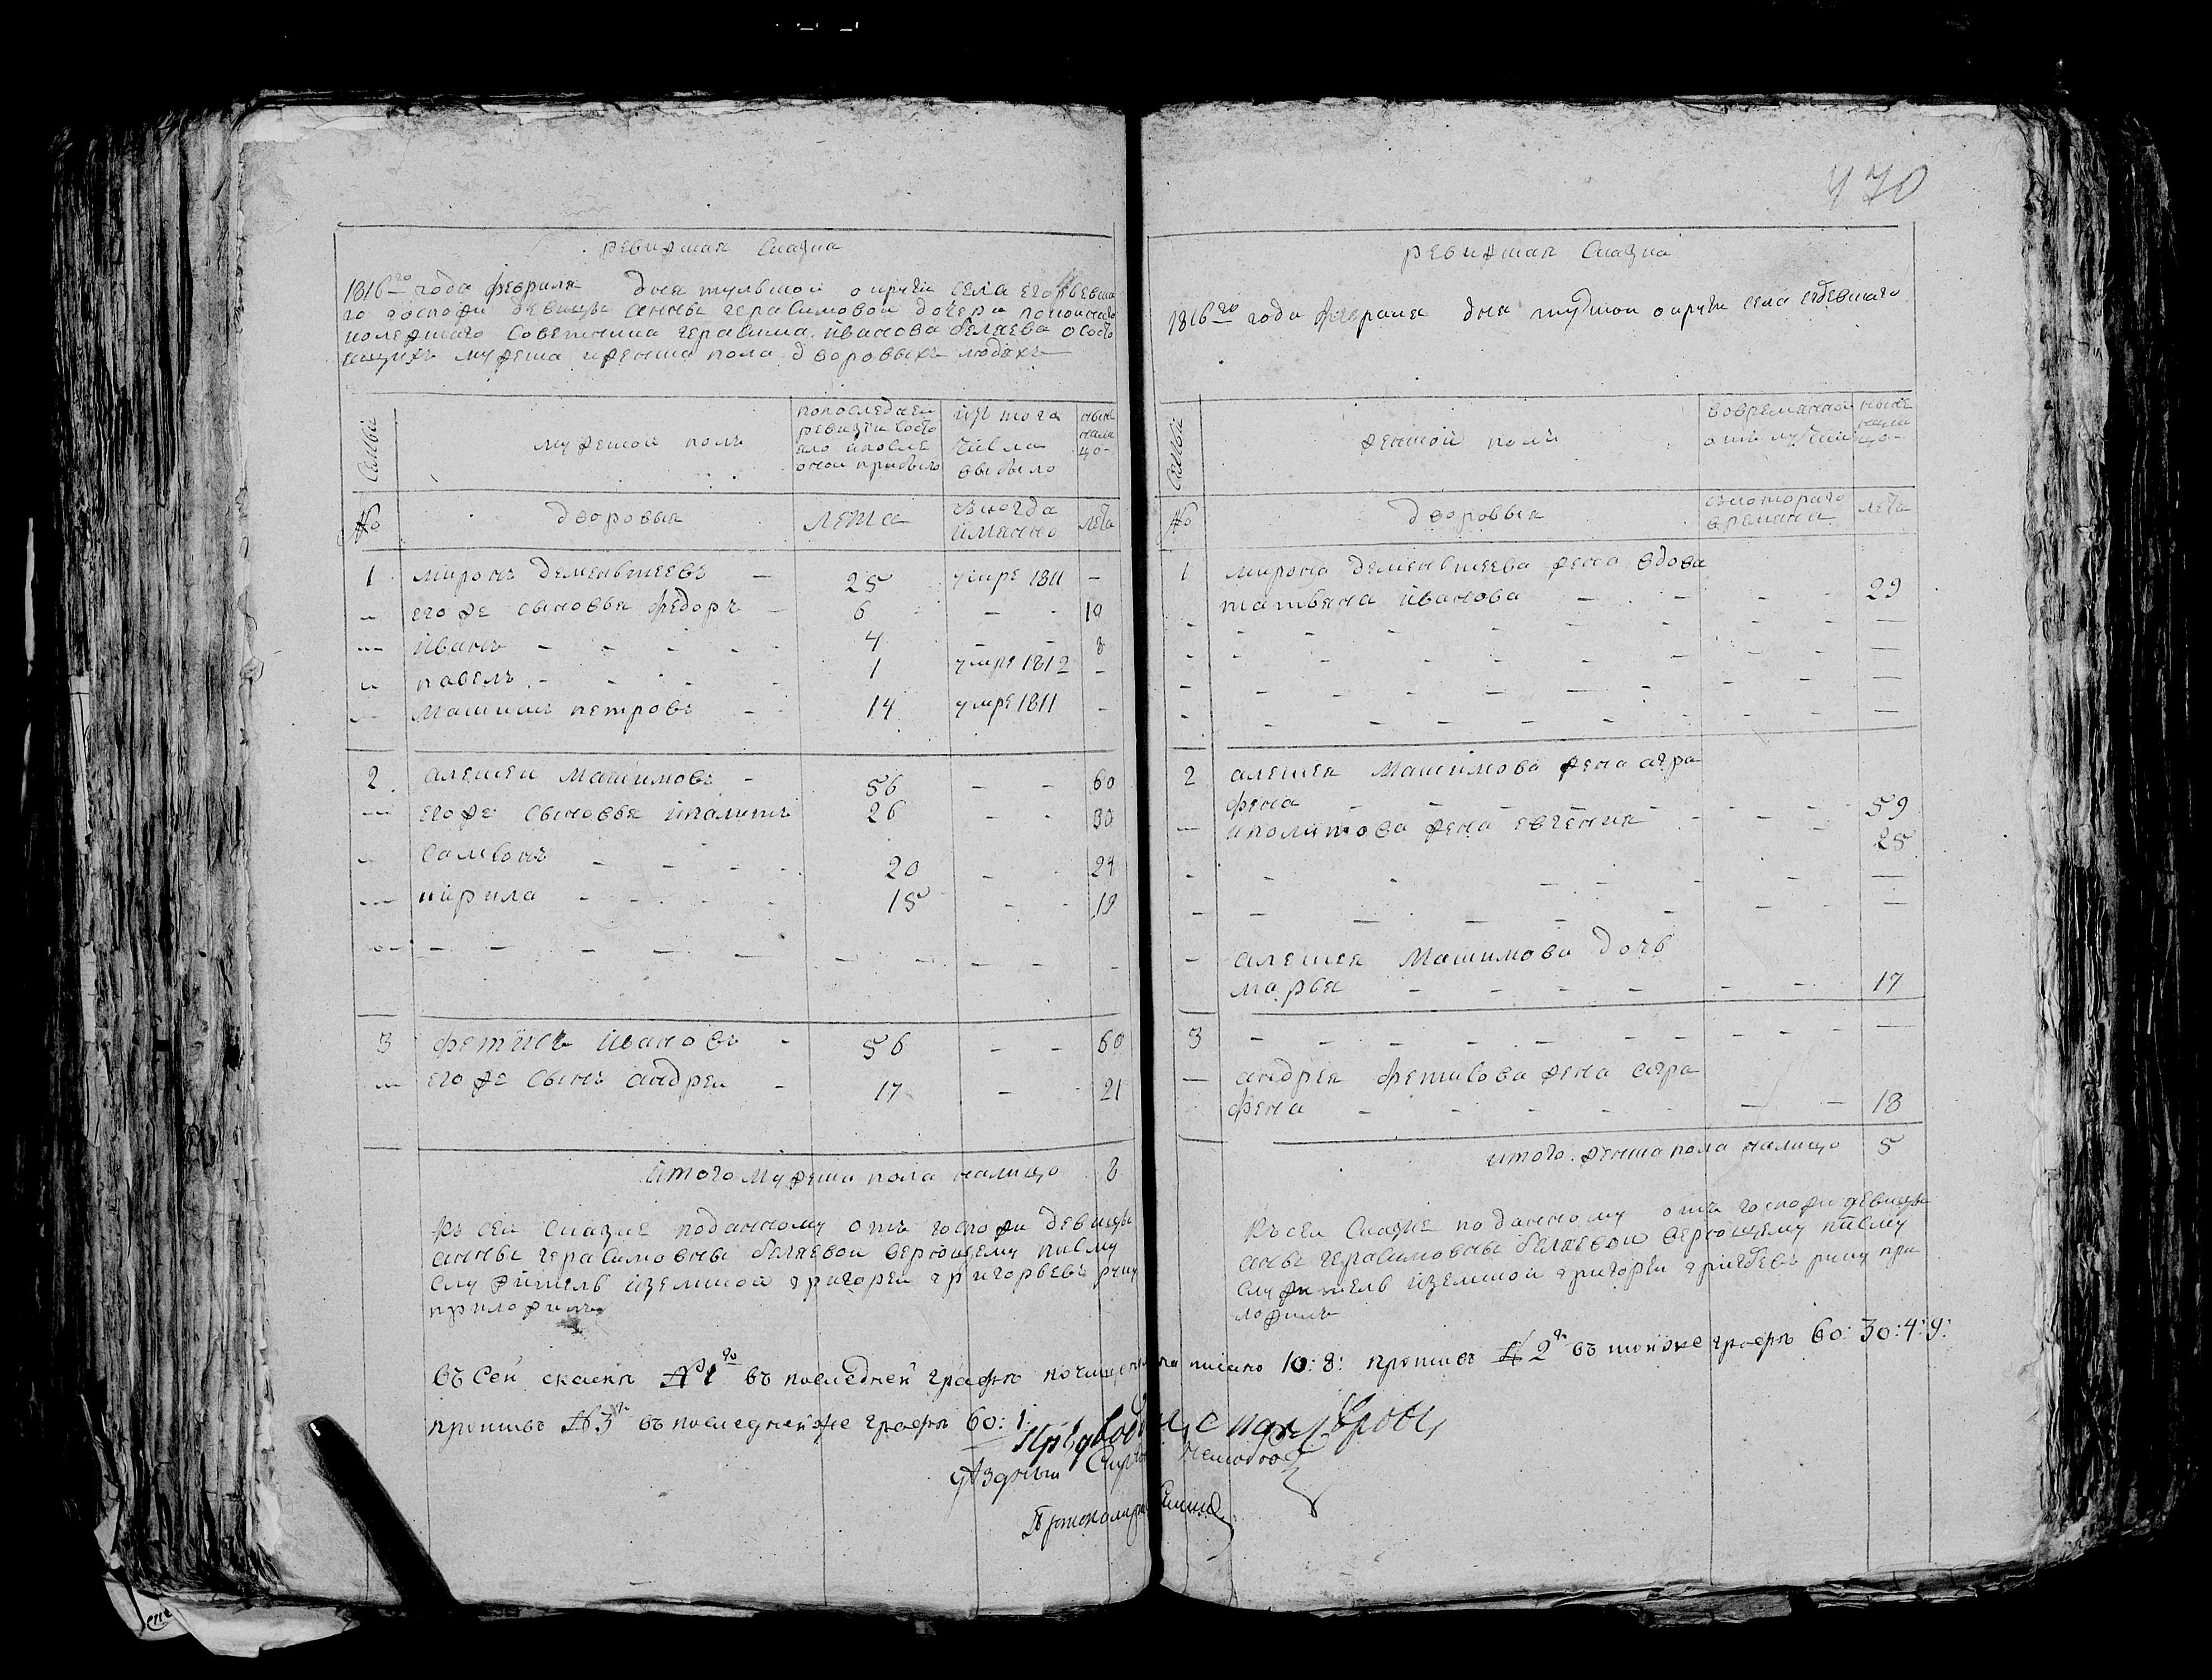 470
ревижская Сказка
1816го года февраля дня тульской округи села егорьевска
го госпожи девицы анны герасимовой дочери покойнаго
колежского Советника герасима иванова беляева о состо
ящихъ мужеска иженска пола дворовыхъ людяхъ
Семьи
мужеской полъ
попоследнеи
ревизги состо
яло ипосле
онои прибыло
изъ того
числа
выбыло
ныне
нали
цо
№
дворовыя
лета
Когда
имянно
лета
1 миронъ дементьевъ - 25 умре 1811 -
- егоже сыновья федоръ - 6 - - 10
- иванъ - - - - 4 - - 8
- павелъ - - - - 1 умре 1812 -
- Максимъ петровъ - 14 умре 1811 -
2 алексеи Максимовъ - 56 - - 60
- егоже сыновья иполитъ 26 - - 30
- самсонъ - - - - 20 - - 24
- кирила - - - - 15 - - 19
- - - - - - - - - - -
3 фетисъ ивановъ - 56 - - 60
- егоже сынъ андреи - 17 - 21
итого мужеска пола налицо 8
Къ сеи Сказке поданному отъ госпожи девицы
анны герасимовны беляевои верющему писму
служитель григореи григорьевъ руку
приложилъ
ревижская Сказка
1816го года февраля дня округи села
Семьи
женской полъ
вовременной
отлучки
ныне
нали
цо
№
дворовыя
скотораго
времяни
лета
1 мирона дементьева жена вдова
татьяна иванова - - - - 29
- - - - - - - - -
- - - - - - - - -
- - - - - - - - -
- - - - - - - - -
2 алексея Максимова жена агра
фена - - - - - - - 59
- иполитова жена евгения - - - 25
- - - - - - - -
- - - - - - - -
- алексея Максимова дочь
марья - - - - - - 17
3 - - - - - - - - - -
- андрея фетисова жена агра
фена - - - - - - - 18
итого женска пола налицо 5
Къ сеи Сказке поданному отъ госпожи девицы
анны герасимовны беляевои верющему писму
служитель григореи руку при
ложилъ
Въ сей сказки № 1го въ последней графѣ почищенна писано 10: 8: противъ № 2го въ тойже графѣ 60: 30: 4: 9:
противъ № 3го въ последнейже графѣ 60: 1:
Уѣздный